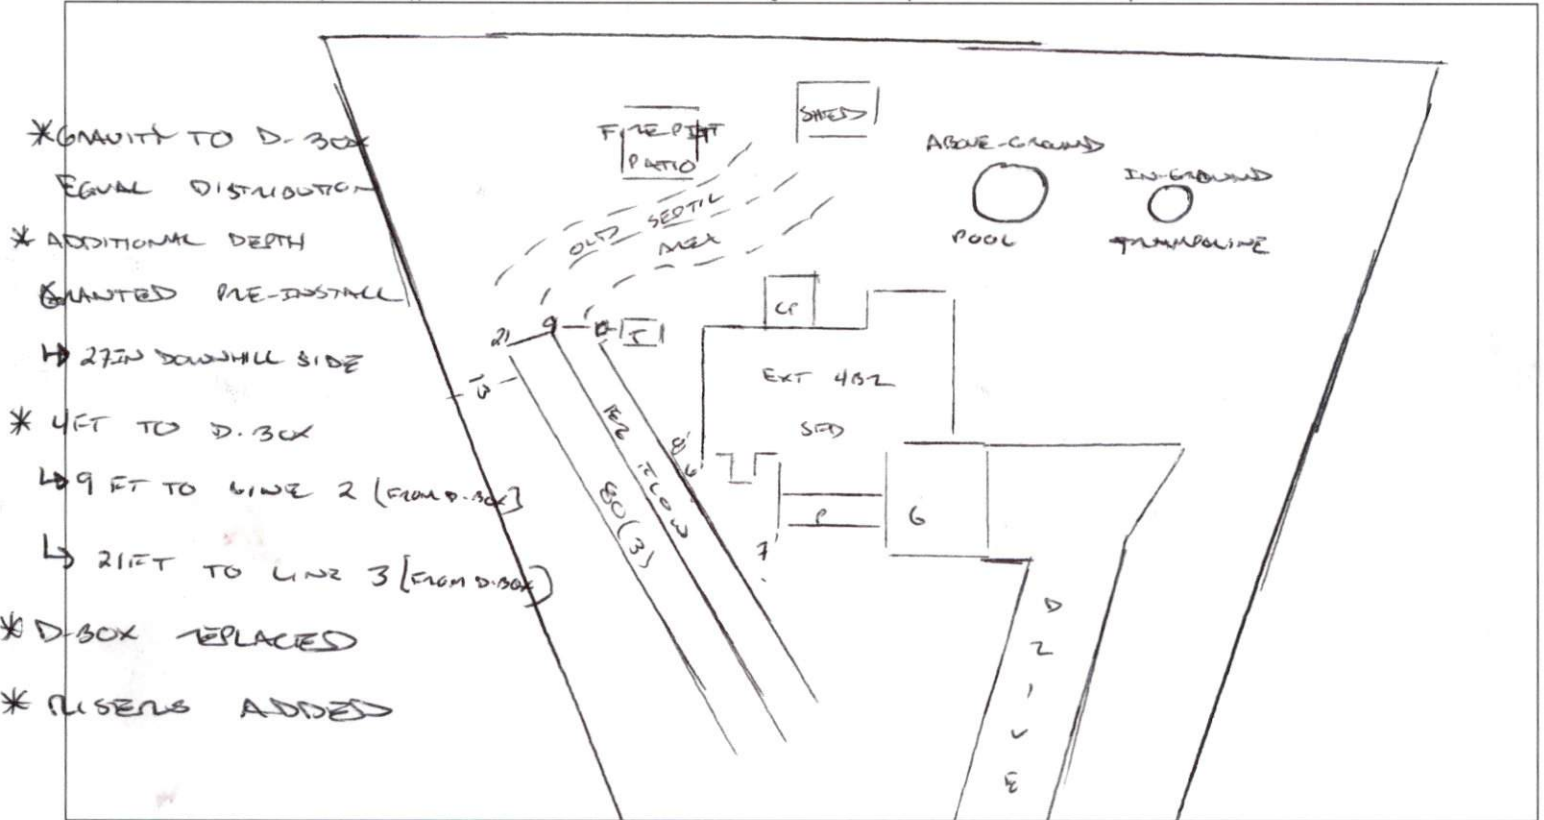 * GRAVITY TO D-BOX
EQUAL DISTRIBUTION
* ADDITIONAL DEPTH
GRANTED PRE-INSTALL
↳ 27IN DOWNHILL SIDE
* 4FT TO D-BOX
↳ 9 FT TO LINE 2 [FROM D-BOX]
↳ 21FT TO LINE 3 [FROM D-BOX]
* D-BOX REPLACED
* RISERS ADDED
FIREPIT
PATIO
SHED
ABOVE-GROUND
POOL
IN-GROUND
TRAMPOLINE
OLD SEPTIC
AREA
21
9
13
EZ FLOW
80(3)
EXT 4BR
SFD
P
7
D
R
I
V
E